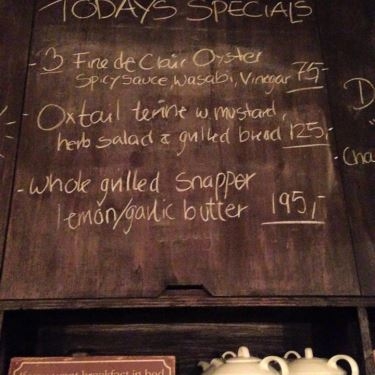 TODAYS SPECIALS
- 3 Fine de Clair Oyster
Spicy sauce, wasabi, Vinegar 75,-
- Oxtail terine w mustard,
herb salad & grilled bread 125,-
- Whole grilled Snapper
lemon/garlic butter 195,-
D
Cha
breakfast in bed